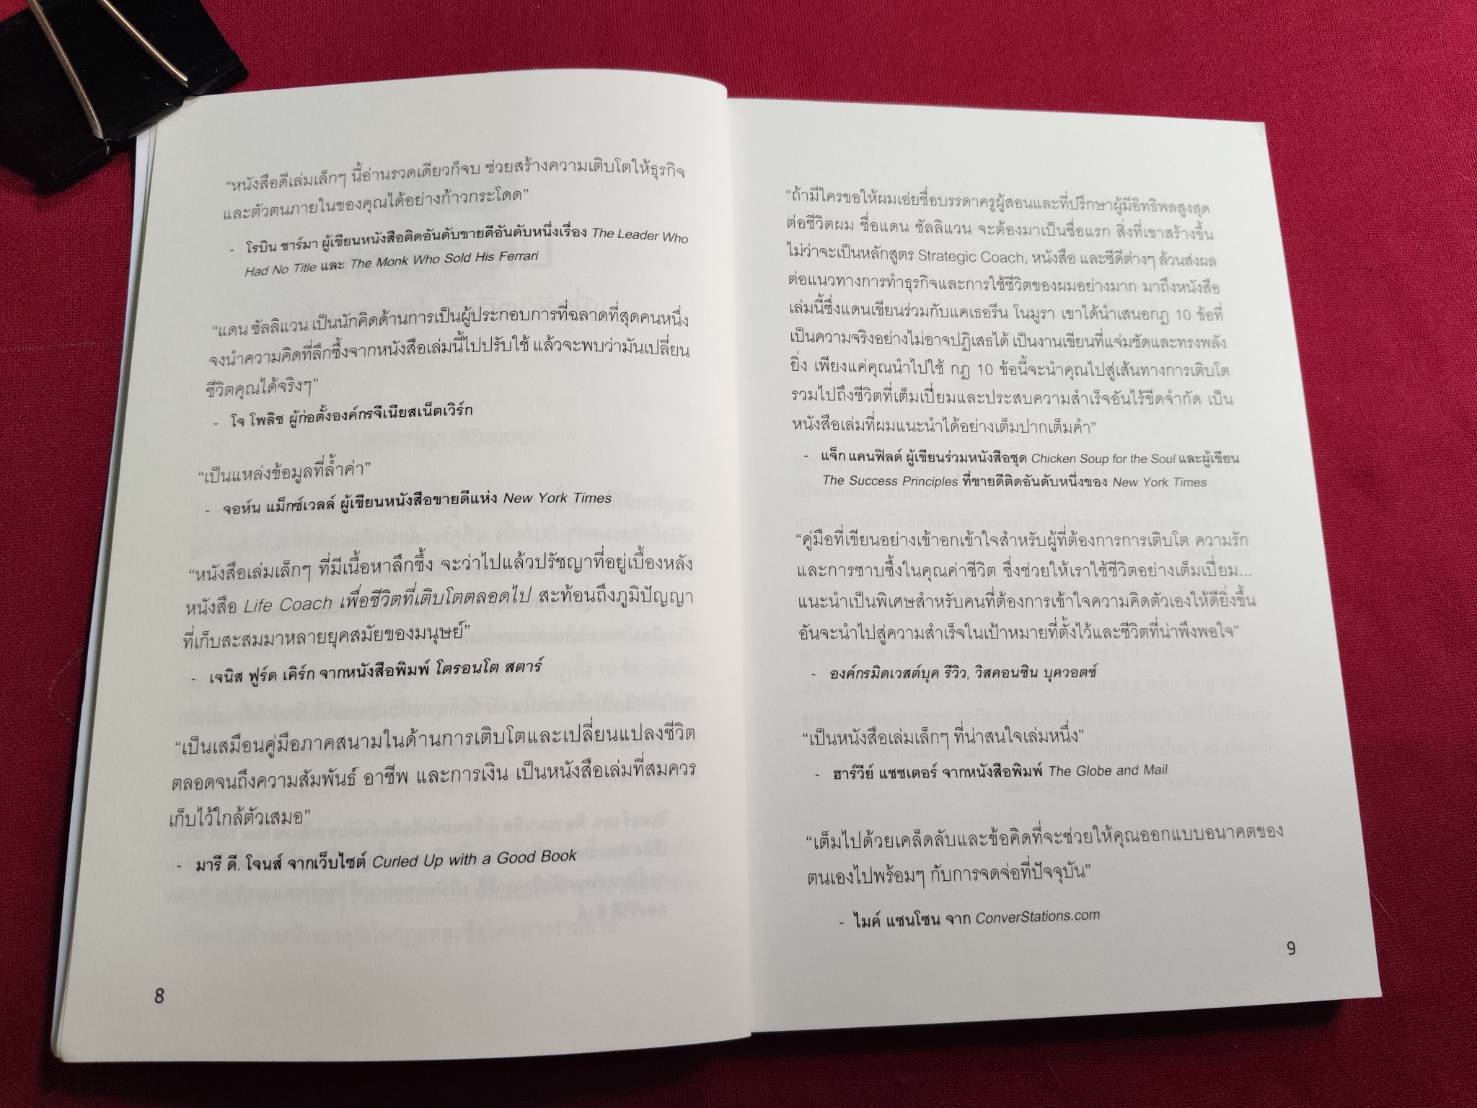 “หนังสือดีเล่มเล็กๆ นี้อ่านรวดเดียวก็จบ ช่วยสร้างความเติบโตให้ธุรกิจ
และตัวตนภายในของคุณได้อย่างก้าวกระโดด”
- โรบิน ชาร์มา ผู้เขียนหนังสือติดอันดับขายดีอันดับหนึ่งเรื่อง The Leader Who
Had No Title และ The Monk Who Sold His Ferrari
“แดน ซัลลิแวน เป็นนักคิดด้านการเป็นผู้ประกอบการที่ฉลาดที่สุดคนหนึ่ง
จงนำความคิดที่ลึกซึ้งจากหนังสือเล่มนี้ไปปรับใช้ แล้วจะพบว่ามันเปลี่ยน
ชีวิตคุณได้จริงๆ”
- โจ โพลิช ผู้ก่อตั้งองค์กรจีเนียสเน็ตเวิร์ก
“เป็นแหล่งข้อมูลที่ล้ำค่า”
- จอห์น แม็กซ์เวลล์ ผู้เขียนหนังสือขายดีแห่ง New York Times
“หนังสือเล่มเล็กๆ ที่มีเนื้อหาลึกซึ้ง จะว่าไปแล้วปรัชญาที่อยู่เบื้องหลัง
หนังสือ Life Coach เพื่อชีวิตที่เติบโตตลอดไป สะท้อนถึงภูมิปัญญา
ที่เก็บสะสมมาหลายยุคสมัยของมนุษย์”
- เจนิส ฟูร์ด เคิร์ก จากหนังสือพิมพ์ โตรอนโต สตาร์
“เป็นเสมือนคู่มือภาคสนามในด้านการเติบโตและเปลี่ยนแปลงชีวิต
ตลอดจนถึงความสัมพันธ์ อาชีพ และการเงิน เป็นหนังสือเล่มที่สมควร
เก็บไว้ใกล้ตัวเสมอ”
- มารี ดี. โจนส์ จากเว็บไซต์ Curled Up with a Good Book
8
“ถ้ามีใครขอให้ผมเอ่ยชื่อบรรดาครูผู้สอนและที่ปรึกษาผู้มีอิทธิพลสูงสุด
ต่อชีวิตผม ชื่อแดน ซัลลิแวน จะต้องมาเป็นชื่อแรก สิ่งที่เขาสร้างขึ้น
ไม่ว่าจะเป็นหลักสูตร Strategic Coach, หนังสือ และซีดีต่างๆ ล้วนส่งผล
ต่อแนวทางการทำธุรกิจและการใช้ชีวิตของผมอย่างมาก มาถึงหนังสือ
เล่มนี้ซึ่งแดนเขียนร่วมกับแคเธอรีน โนมูรา เขาได้นำเสนอกฎ 10 ข้อที่
เป็นความจริงอย่างไม่อาจปฏิเสธได้ เป็นงานเขียนที่แจ่มชัดและทรงพลัง
ยิ่ง เพียงแค่คุณนำไปใช้ กฎ 10 ข้อนี้จะนำคุณไปสู่เส้นทางการเติบโต
รวมไปถึงชีวิตที่เต็มเปี่ยมและประสบความสำเร็จอันไร้ขีดจำกัด เป็น
หนังสือเล่มที่ผมแนะนำได้อย่างเต็มปากเต็มคำ”
- แจ็ก แคนฟิลด์ ผู้เขียนร่วมหนังสือชุด Chicken Soup for the Soul และผู้เขียน
The Success Principles ที่ขายดีติดอันดับหนึ่งของ New York Times
“คู่มือที่เขียนอย่างเข้าอกเข้าใจสำหรับผู้ที่ต้องการการเติบโต ความรัก
และการซาบซึ้งในคุณค่าชีวิต ซึ่งช่วยให้เราใช้ชีวิตอย่างเต็มเปี่ยม...
แนะนำเป็นพิเศษสำหรับคนที่ต้องการเข้าใจความคิดตัวเองให้ดียิ่งขึ้น
อันจะนำไปสู่ความสำเร็จในเป้าหมายที่ตั้งไว้และชีวิตที่น่าพึงพอใจ”
- องค์กรมิดเวสต์บุค รีวิว, วิสคอนซิน บุควอตซ์
“เป็นหนังสือเล่มเล็กๆ ที่น่าสนใจเล่มหนึ่ง”
- ฮาร์วีย์ แชชเตอร์ จากหนังสือพิมพ์ The Globe and Mail
“เต็มไปด้วยเคล็ดลับและข้อคิดที่จะช่วยให้คุณออกแบบอนาคตของ
ตนเองไปพร้อมๆ กับการจดจ่อที่ปัจจุบัน”
- ไมค์ แซนโซน จาก ConverStations.com
9